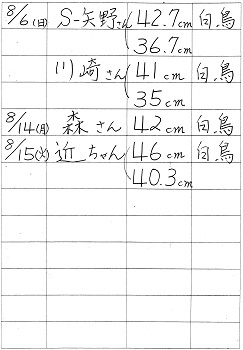 8/6(日) S-矢野さん 42.7cm 白鳥
36.7cm
川崎さん 41cm 白鳥
35cm
8/14(月) 森さん 42cm 白鳥
8/15(火) 近ちゃん 46cm 白鳥
40.3cm